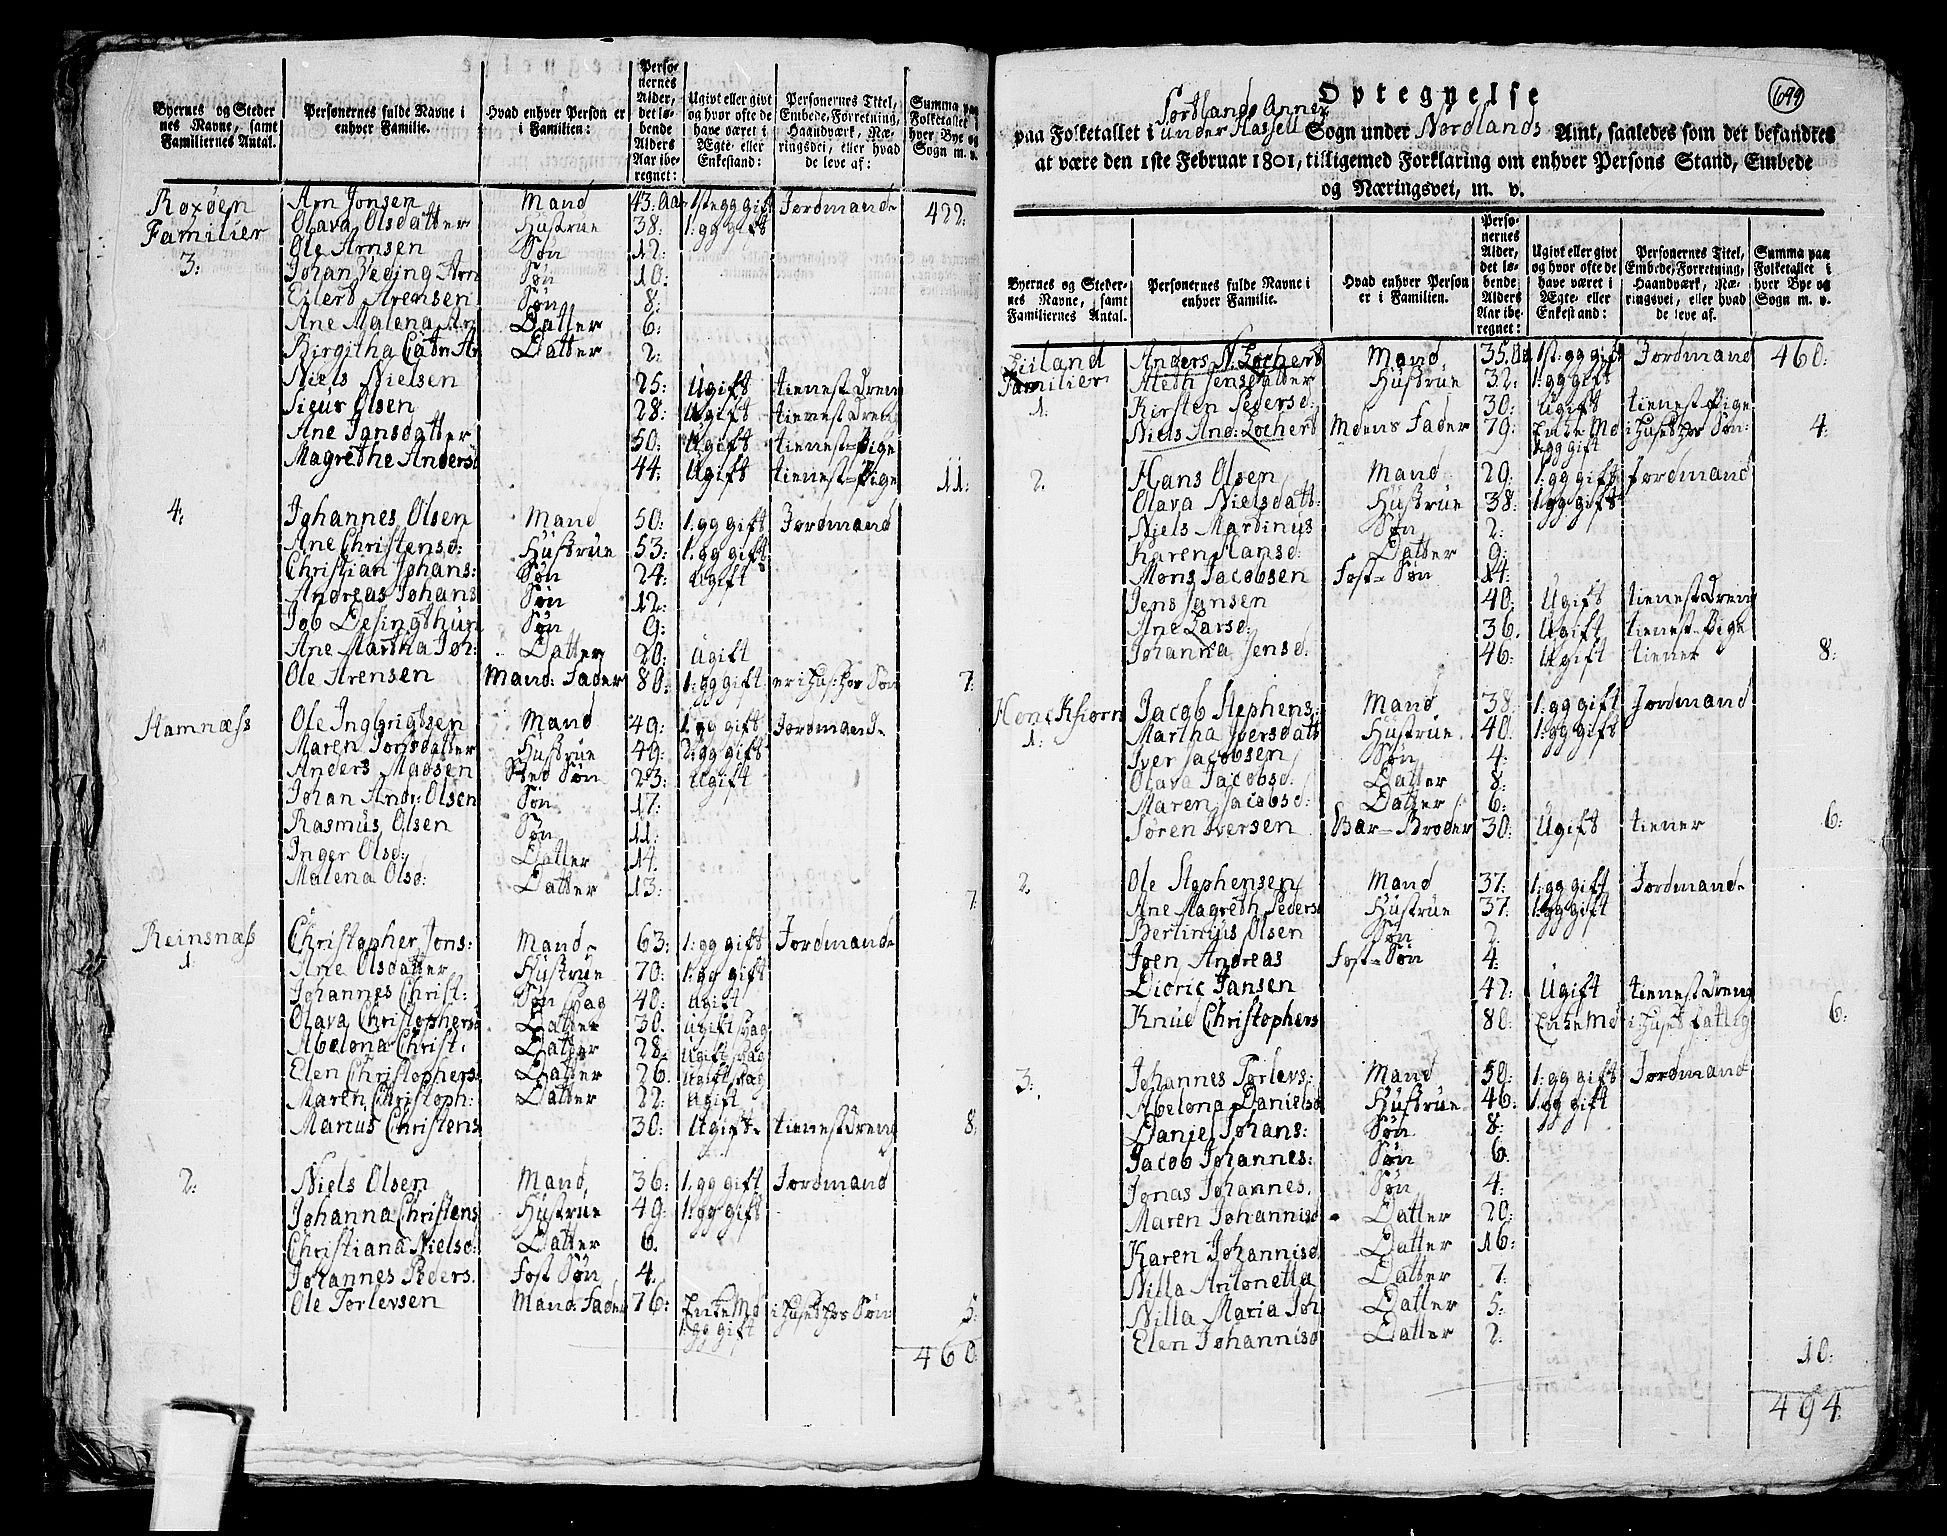 Byernes og Steder
nes Navne, samt
Familiernes Antal.
Personernes fulde Navne i
enhver Familie.
Hvad enhver Person er
i Familien:
Perso-
nernes
Alder,
det lø-
bende
Alders
Aar ibe-
regnet:
Ugivt eller givt
og hvor ofte de
have været i
Ægte- eller
Enkestand:
Personernes Titel,
Embede, Forretning,
Haandværk, Næ-
ringsvei, eller hvad
de leve af:
Summa paa
Folketallet i
hver Bye og
Sogn m. v.
Roxøen Arn Jonsen Mand 43. Aar 1ste gg gift Jordmand 422:
Familier Olava Olsdatter Hustrue 38: 1: gg gift
Ole Arnsen Søn 12:
3: Johan Veding Arn Søn 10:
Eilert Arensen Søn 8:
Ane Malena Arn Datter 6:
Birgitha Catr: Ar Datter 2:
Niels Nielsen 25: Ugift tienest Dreng
Sigur Olsen 28: Ugift tienest Dreng
Ane Jansdatter 50: Ugift tienest-Pige
Magrethe Andersd 44. Ugift tienest-Pige 11:
4: Johannes Olsen Mand 50: 1: gg gift Jordmand
Ane Christensd: Hustrue 53: 1: gg gift
Christian Johans: Søn 24: Ugift
Andreas Johans Søn 12:
Job Desingthun Søn 9:
Ane Martha Joh: Datter 20: Ugift
Ole Arensen Mand: Fader 80: 1: gg gift er i hus: hos Søn 7:
Hamnæss Ole Ingbrigtsen Mand 49: 1: gg gift Jordmand
Maren Jonsdatter Hustrue 49: 2: gg gift
Anders Madsen Sted Søn 23: Ugift
Johan Andr: Olsen Søn 17:
Rasmus Olsen Søn 11:
Inger Olsd: Datter 14.
Malena Olsd: Datter 13: 7
Reinsnæss Christopher Jons: Mand 63: 1: gg gift Jordmand
1. Ane Olsdatter Hustrue 70: 1: gg gift
Johannes Christ: Søn svag 40: Ugift
Olava Christophersd Datter 30. Ugift svag
Abelona Christ: Datter 28: Ugift svag
Elen Christophers: Datter 26. Ugift svag
Maren Christoph: Datter 22: Ugift
Marcus Christens 30: Ugift tienest Dreng 8:
2: Niels Olsen Mand 36: 1: gg gift Jordmand
Johanna Christens Hustrue 49: 1: gg gift
Christiana Nielsd: Datter 6.
Johannes Peders. Fost Søn 4
Ole Torlevsen Mand: Fader 76: Enke Md i huset hos Søn 5:
1: gg gift
460
Optegnelse 699
Sortlands Annex
paa Folketallet i under Hassell Sogn under Nordlands Amt, saaledes som det befandtes
at være den 1ste Februar 1801, tilligemed Forklaring om enhver Persons Stand, Embede
og Næringsvei, m. v.
Byernes og Steder-
nes Navne, samt
Familiernes Antal.
Personernes fulde Navne i
enhver Familie.
Hvad enhver Person
er i Familien.
Perso-
nernes
Alder,
det lø-
bende
Alders
Aar ibe-
regnet:
Ugivt eller givt
og hvor ofte de
have været i
Ægte- eller
Enkestand:
Personernes Titel,
Embede, Forretning,
Haandværk, Næ-
ringsvei, eller hvad
de leve af.
Summa paa
Folketallet i
hver Bye og
Sogn m. v.
Liiland Anders N. Lochert Mand 35. Aar 1st: gg gift Jordmand 460:
Familier Aleth Jensdatter Hustrue 32: 1: gg gift
1: Kirsten Pedersd: 30: Ugift tienest-Pige
Niels And: Lochert Mdens Fader 79: Enke Md i huset hos Søn: 4:
1: gg gift
2. Hans Olsen Mand 29: 1: gg gift Jordmand
Olava Nielsdatt: Hustrue 38: 1: gg gift
Niels Martinus Søn 2:
Karen Hansd: Datter 9:
Mons Jacobsen Fost-Søn 14:
Jens Jansen 40: Ugift tienest Dreng
Ane Larsd: 36. Ugift tienest-Pige
Johanna Jensd: 46: Ugift tiener 8:
Jacob Stephens: Mand 38: 1: gg gift Jordmand
1: Martha Iversdatt Hustrue. 40. 1: gg gift
Iver Jacobsen Søn 4:
Olava Jacobsd: Datter 8:
Maren Jacobsd: Datter 6:
Søren Iversen Bar-Broder 30: Ugift tiener 6:
2 Ole Stephensen Mand 37: 1: gg gift Jordmand
Ane Magreth Peders Hustrue 37: 1: gg gift
Bertinius Olsen Søn 2
Joen Andreas Fost-Søn 4.
Didric Jansen 42: Ugift tienest Dreng
Knud Christophers 80: Enke Md i huset fattig 6:
3: Johannes Torlevs: Mand 50: 1: gg gift Jordmand
Abelona Danielsd Hustrue 46: 1: gg gift
Daniel Johans: Søn 8:
Jacob Johannes: Søn 6:
Jonas Johannes. Søn 4:
Maren Johannisd Datter 20:
Karen Johannisd Datter 16:
Nilla Antonetta Datter 7
Nilla Maria Joh Datter 5:
Elen Johannisd Datter 2: 10:
494.